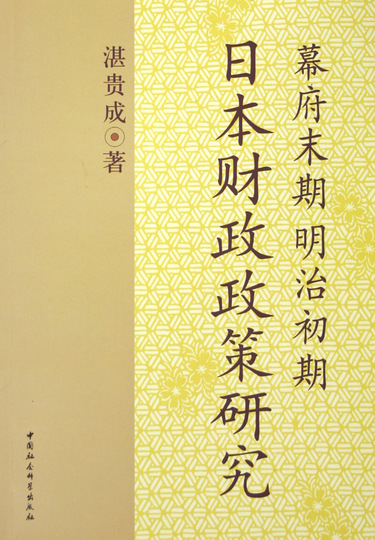 幕府末期明治初期
日本财政政策研究
湛贵成⊙著
中国社会科学出版社